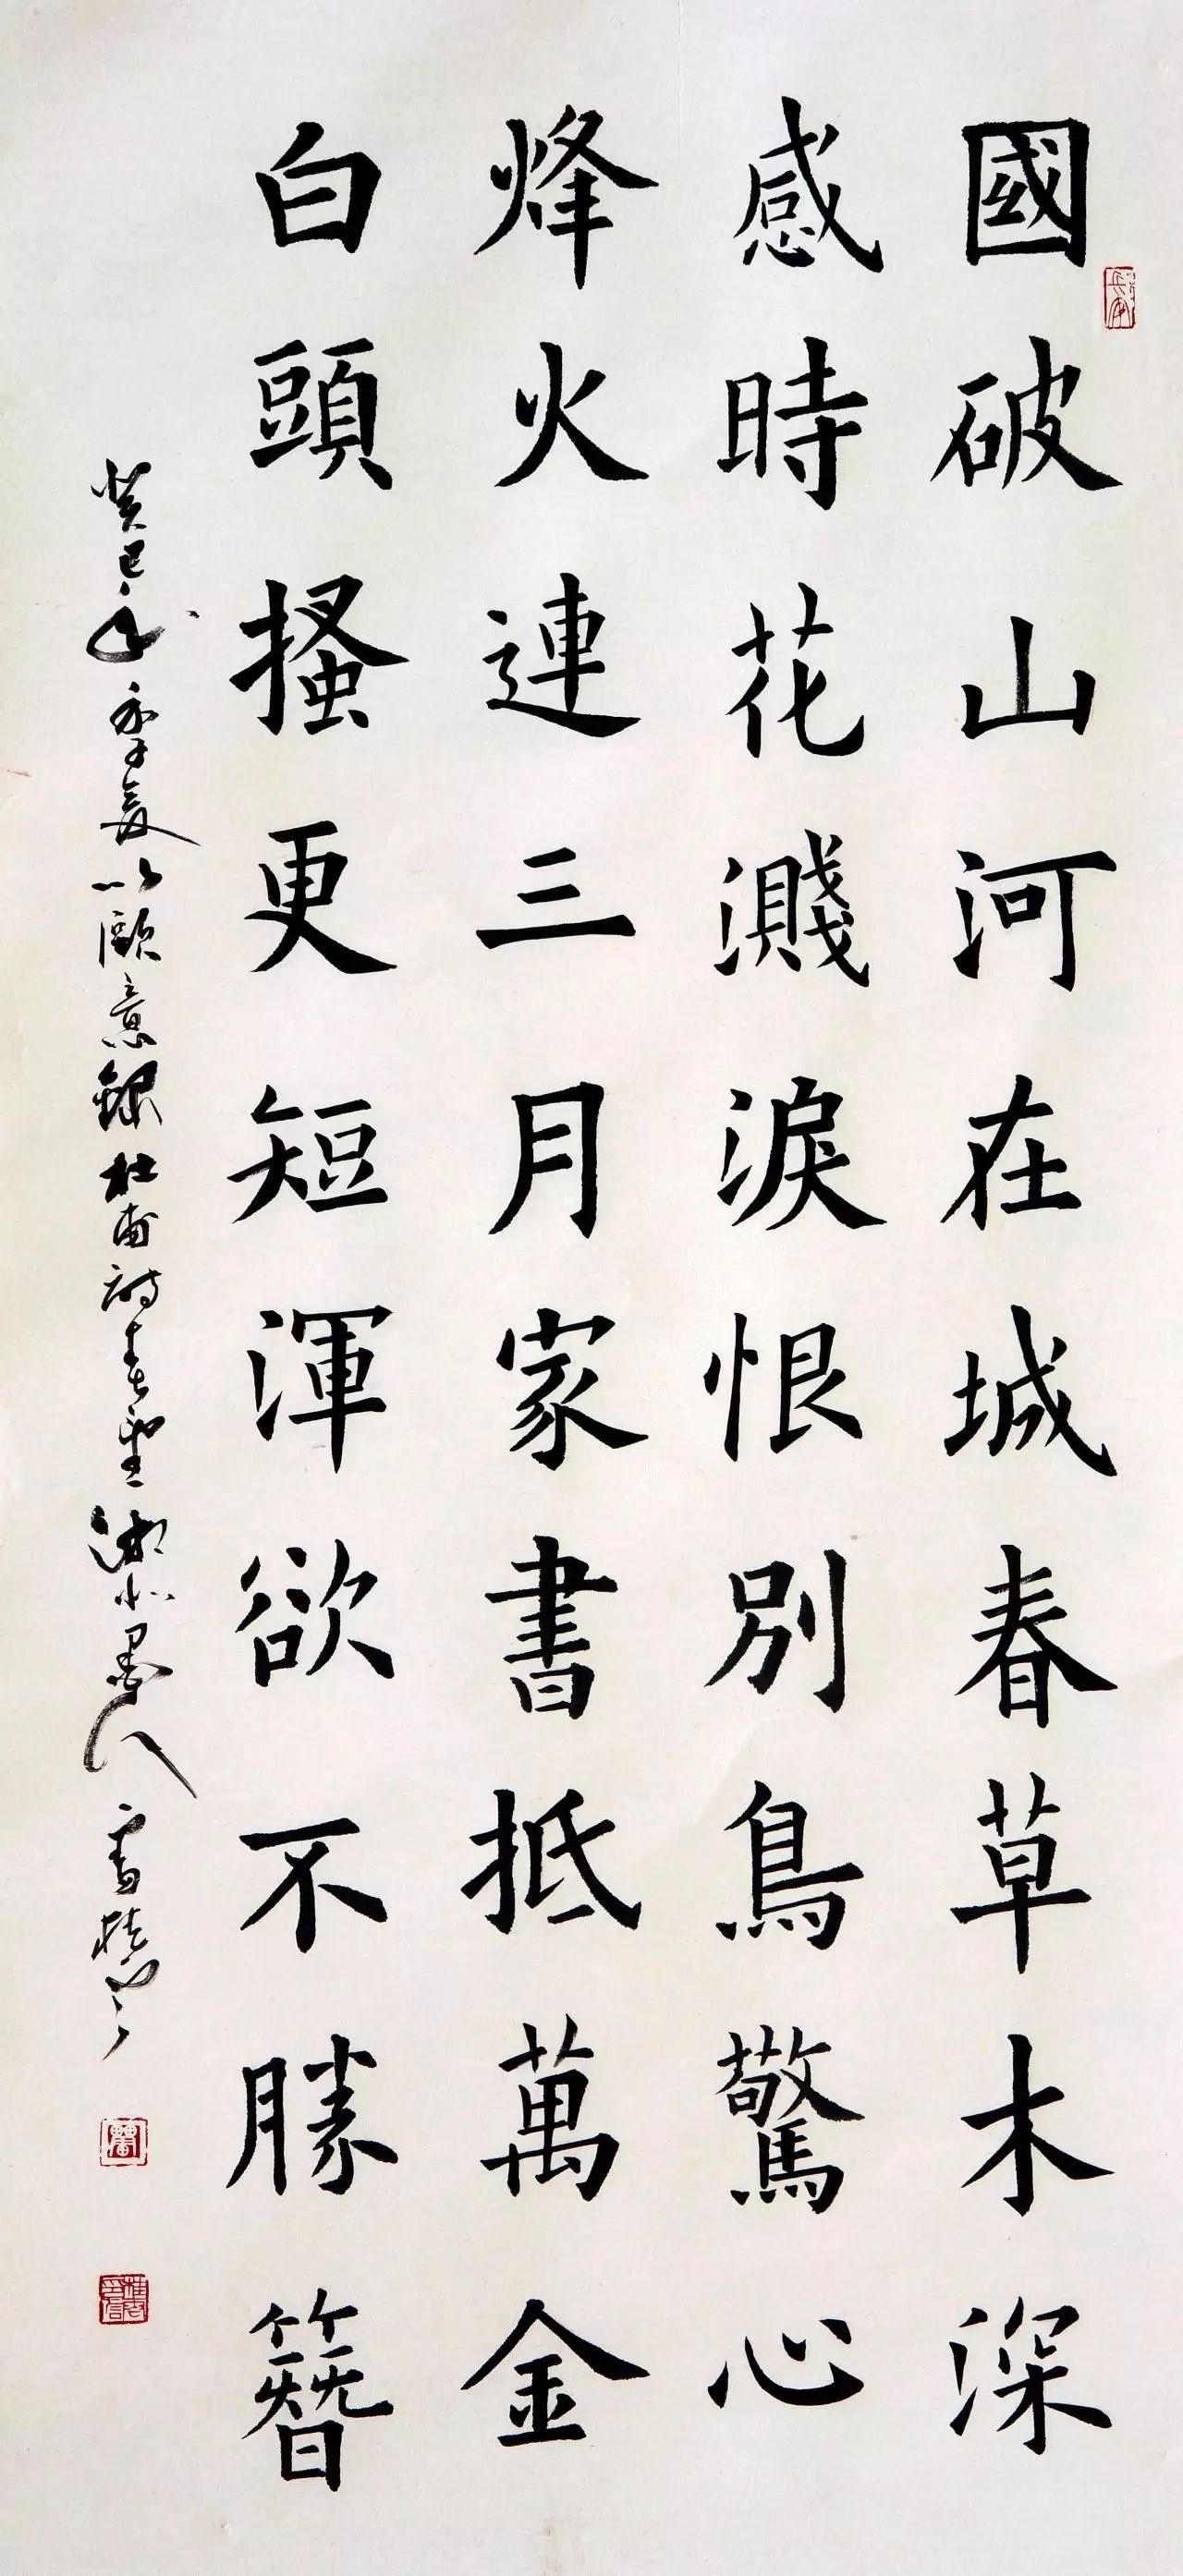 國破山河在城春草木深
感時花濺淚恨別鳥驚心
烽火連三月家書抵萬金
白頭搔更短渾欲不勝簪
癸巳年季夏以歐意錄杜甫詩春望湖北墨人